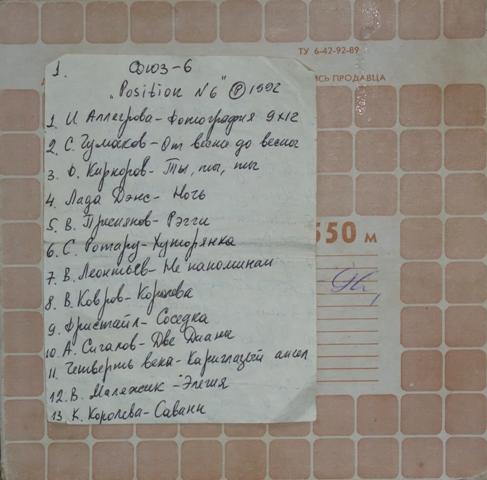 ТУ 6-42-92-89
ПИСЬ ПРОДАВЦА
550 м
1. Союз-6
"Position N6" Ⓟ 1992
1. И. Аллегрова- Фотография 9x12
2. С. Чумаков- От весны до весны
3. Ф. Киркоров- Ты, ты, ты
4. Лада Дэнс- Ночь
5. В. Пресняков- Рэгги
6. С. Ротару- Хуторянка
7. В. Леонтьев- Не напоминай
8. В. Ковров- Королева
9. Фристайл- Соседка
10. А. Сигалов- Две Дианы
11. Четверть века- Кареглазый ангел
12. В. Малежик- Элегия
13. К. Королева- Саванн